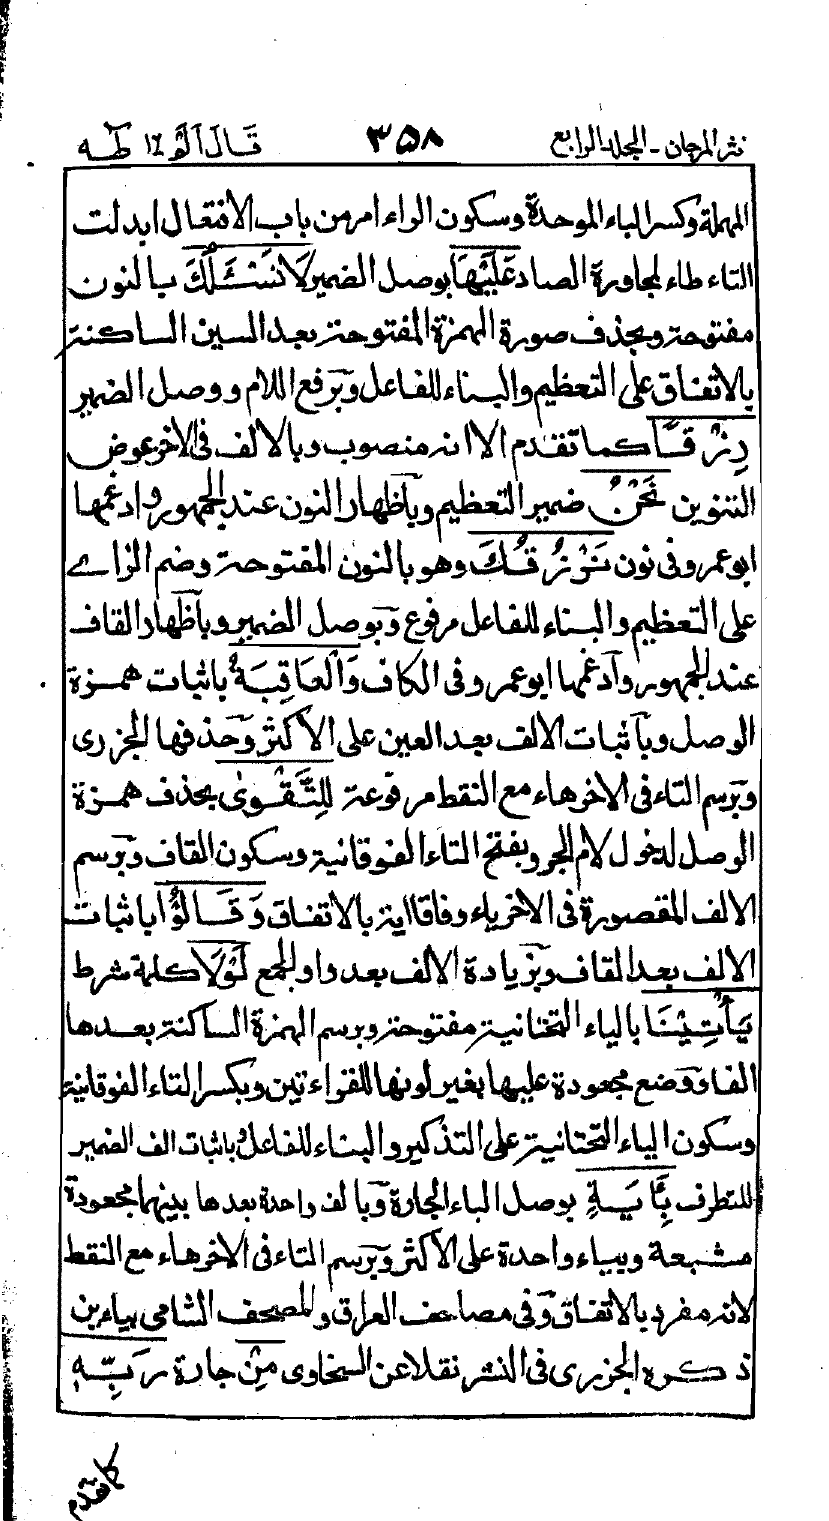 نثر المرجان - المجلد الرابع ٣٥٨ قَالَ اَلَمْ ١٦ طٰهٰ
المهملة وكسر الباء الموحدة وسكون الراء امر من باب الافتعال ابدلت
التاء طاء لمجاورة الصاد عَلَيْهَا بوصل الضمير لَا نَسْـَٔلُكَ بالنون
مفتوحة وبحذف صورة الهمزة المفتوحة بعد السين الساكنة
بالاتفاق على التعظيم والبناء للفاعل وبرفع اللام ووصل الضمير
رِزْقًا كما تقدم الا انه منصوب وبالالف في الاخر عوض
التنوين نَحْنُ ضمير التعظيم وباظهار النون عند الجمهور وادغمها
ابو عمرو فى نون نَرْزُقُكَ وهو بالنون المفتوحة وضم الزاے
على التعظيم والبناء للفاعل مرفوع وبوصل الضمير وباظهار القاف
عند الجمهور وادغمها ابو عمرو فى الكاف وَالْعَاقِبَةُ باثبات همزة
الوصل وباثبات الالف بعد العين على الاكثر وحذفها الجزرى
وبرسم التاء فى الاخر هاء مع النقط مرفوعة لِلتَّقْوٰى بحذف همزة
الوصل لدخول لام الجر وبفتح التاء الفوقانية وسكون القاف وبرسم
الالف المقصورة فى الاخر ياء وفاقا اية بالاتفاق وَقَالُوْا باثبات
الالف بعد القاف وبزيادة الالف بعد واو الجمع لَوْلَا كلمة شرط
يَأْتِيْنَا بالياء التحتانية مفتوحة وبرسم الهمزة الساكنة بعدها
الفا ووضع مجعودة عليها بغير لونها للقراءتين وبكسر التاء الفوقانية
وسكون الياء التحتانية على التذكير والبناء للفاعل وباثبات الف الضمير
للتطرف بِـَٔايَةٍ بوصل الباء الجارة وبالف واحدة بعدها بينهما مجعودة
مشبعة وبياء واحدة على الاكثر وبرسم التاء فى الاخر هاء مع النقط
لانه مفرد بالاتفاق وفى مصاحف العراق والمصحف الشامى بياءين
ذكره الجزرى فى النشر نقلا عن السخاوى مِنْ جارة رَبِّهٖ
كما تقدم